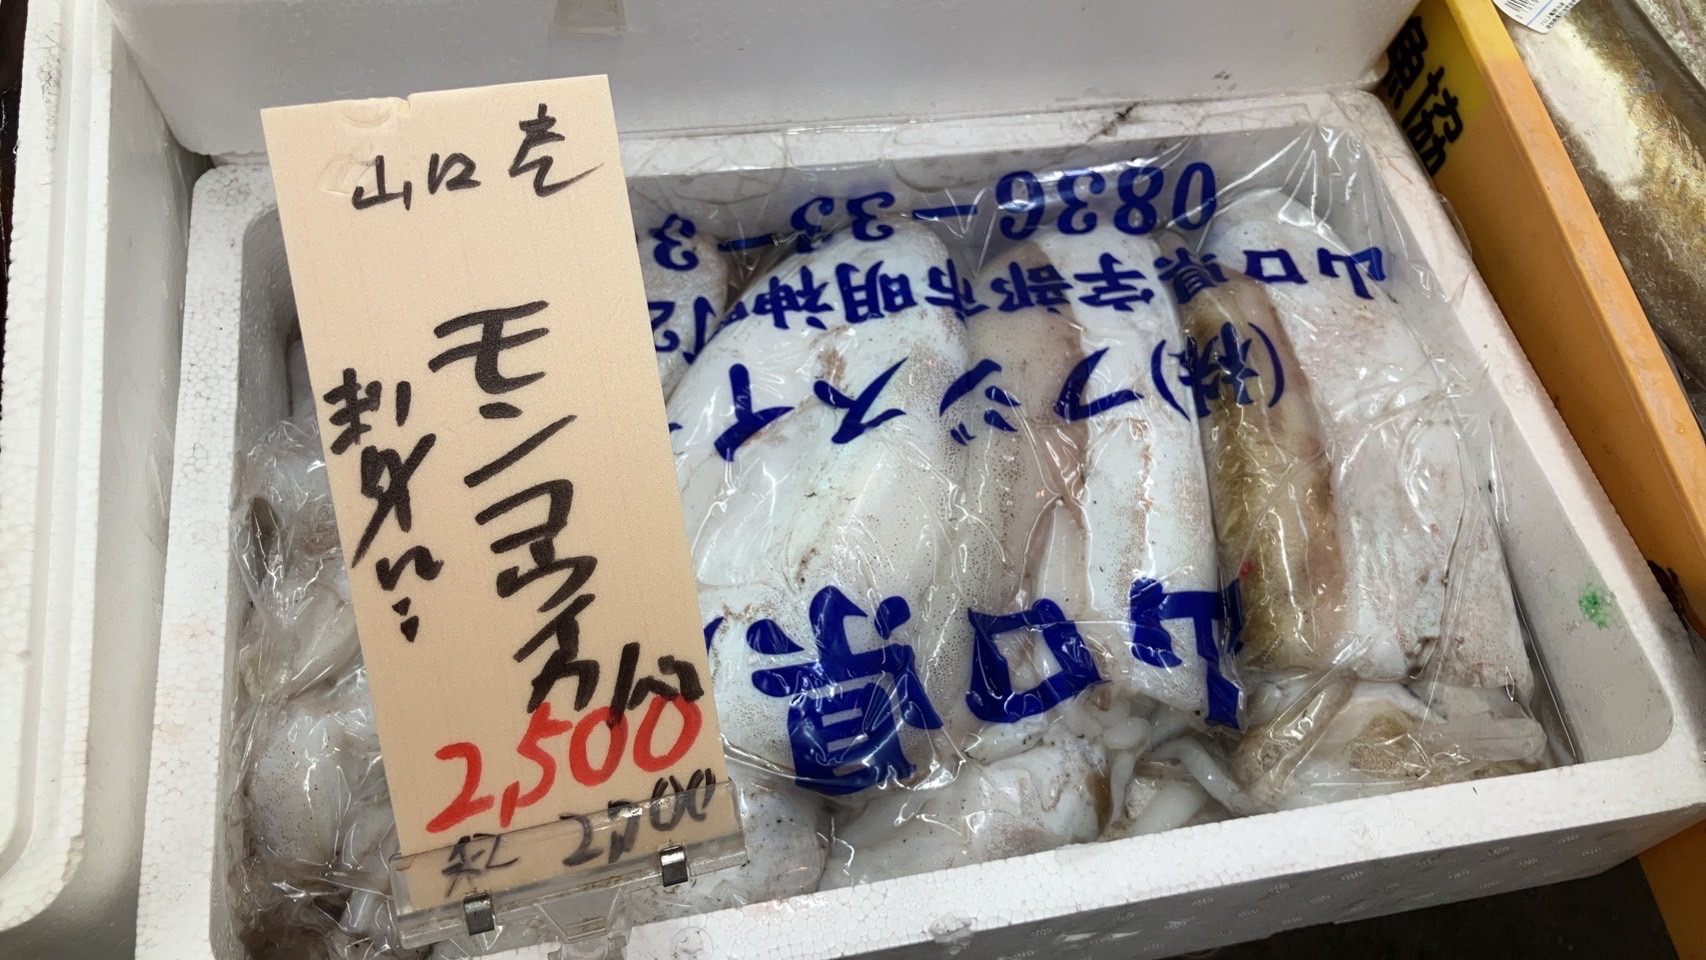 山口産
モンコウイカ
刺身に
2,500
込 2,700
0836-33-3
山口県宇部市明神町2
(株)フジスイ
山口
漁協